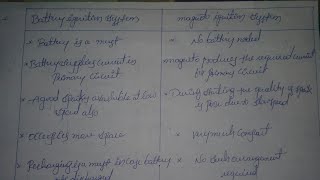 Battery ignition system
magneto ignition system
* Battery is a must
* No battery needed
* Battery supplies current in
primary circuit
magneto produces the required current
for primary circuit
* A good spark available at low
speed also
* During starting the quality of spark
is poor due to slow speed
* Occupies more space
* Very much compact
* Recharging is must in case battery
* No such arrangement
required